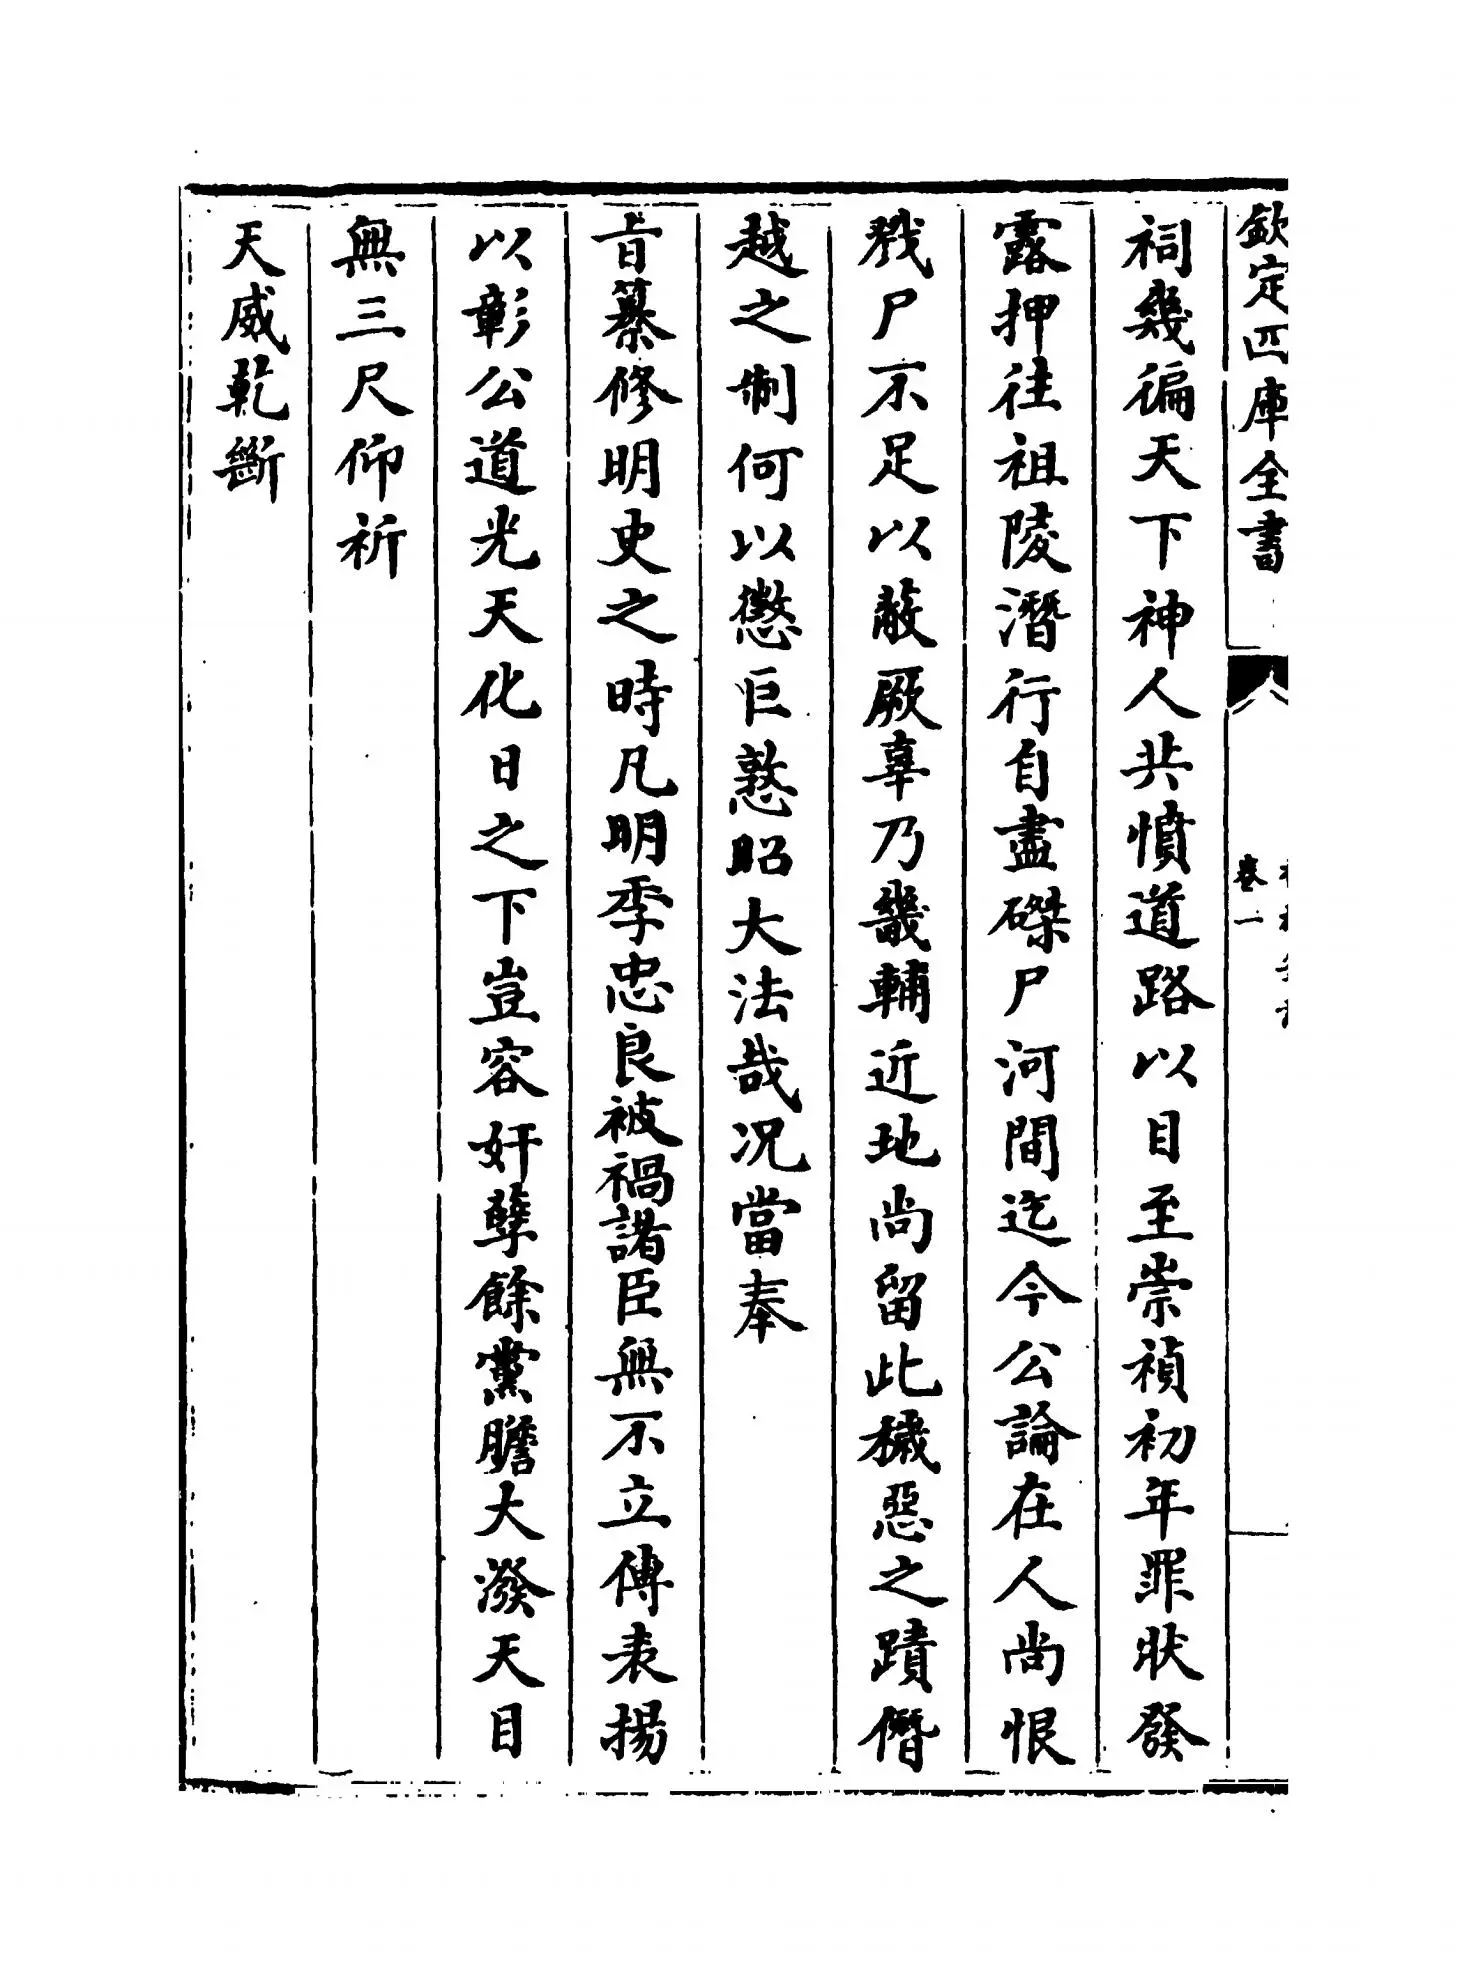 欽定四庫全書
卷一
祠幾徧天下神人共憤道路以目至崇禎初年罪狀發
露押往祖陵潛行自盡磔尸河間迄今公論在人尚恨
戮尸不足以蔽厥辜乃畿輔近地尚留此穢惡之蹟僭
越之制何以懲巨憝昭大法哉况當奉
旨纂修明史之時凡明季忠良被禍諸臣無不立傳表揚
以彰公道光天化日之下豈容奸孽餘黨膽大潑天目
無三尺仰祈
天威乾斷